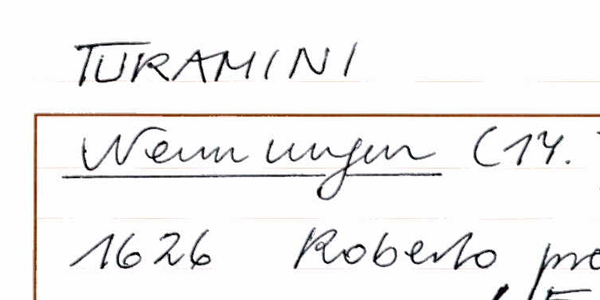 TURAMINI
Nennungen (14.
1626 Roberto pre